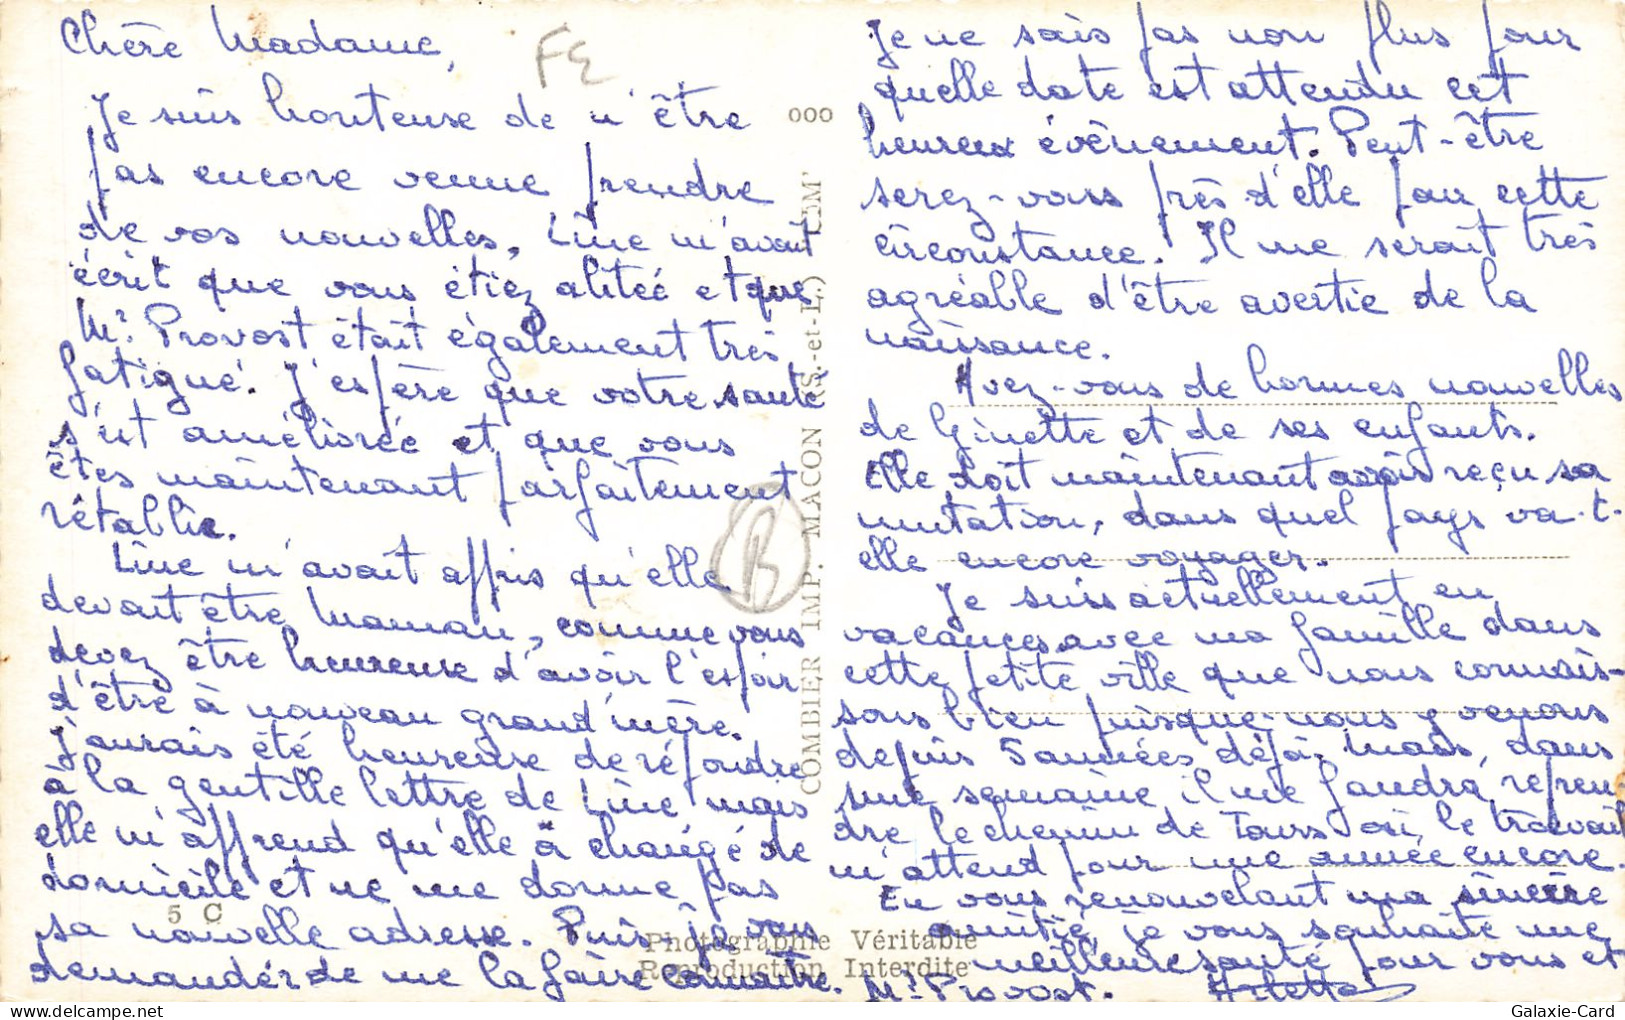 Chère Madame,
Je suis honteuse de n'être
pas encore venue prendre
de vos nouvelles, Line m'avait
écrit que vous étiez alitée et que
Mr. Provost était également très
fatigué. J'espère que votre santé
s'est améliorée et que vous
êtes maintenant parfaitement
rétablie.
Line m'avait appris qu'elle
devait être Maman, comme vous
devez être heureuse d'avoir l'espoir
d'être à nouveau grand'mère.
J'aurais été heureuse de répondre
à la gentille lettre de Line mais
elle m'apprend qu'elle a changé de
domicile et ne me donne pas
sa nouvelle adresse. Puis-je vous
demander de me la faire connaître.
Je ne sais pas non plus pour
quelle date est attendu cet
heureux évènement. Peut-être
serez-vous près d'elle pour cette
circonstance. Il me serait très
agréable d'être avertie de la
naissance.
Avez-vous de bonnes nouvelles
de Ginette et de ses enfants.
Elle doit maintenant avoir reçu sa
mutation, dans quel pays va-t-
elle encore voyager.
Je suis actuellement en
vacances avec ma famille dans
cette petite ville que nous connais-
sons bien puisque nous y venons
depuis 5 années déjà. Mais, dans
une semaine il me faudra repren-
dre le chemin de Tours où le travail
m'attend pour une année encore.
En vous renouvelant ma sincère
amitié, je vous souhaite une
meilleure santé pour vous et
Mr. Provost. Arlette
FE
B
000
COMBIER IMP. MACON (S.-et-L.) "CIM"
5 C
Photographie Véritable
Reproduction Interdite
Galaxie-Card